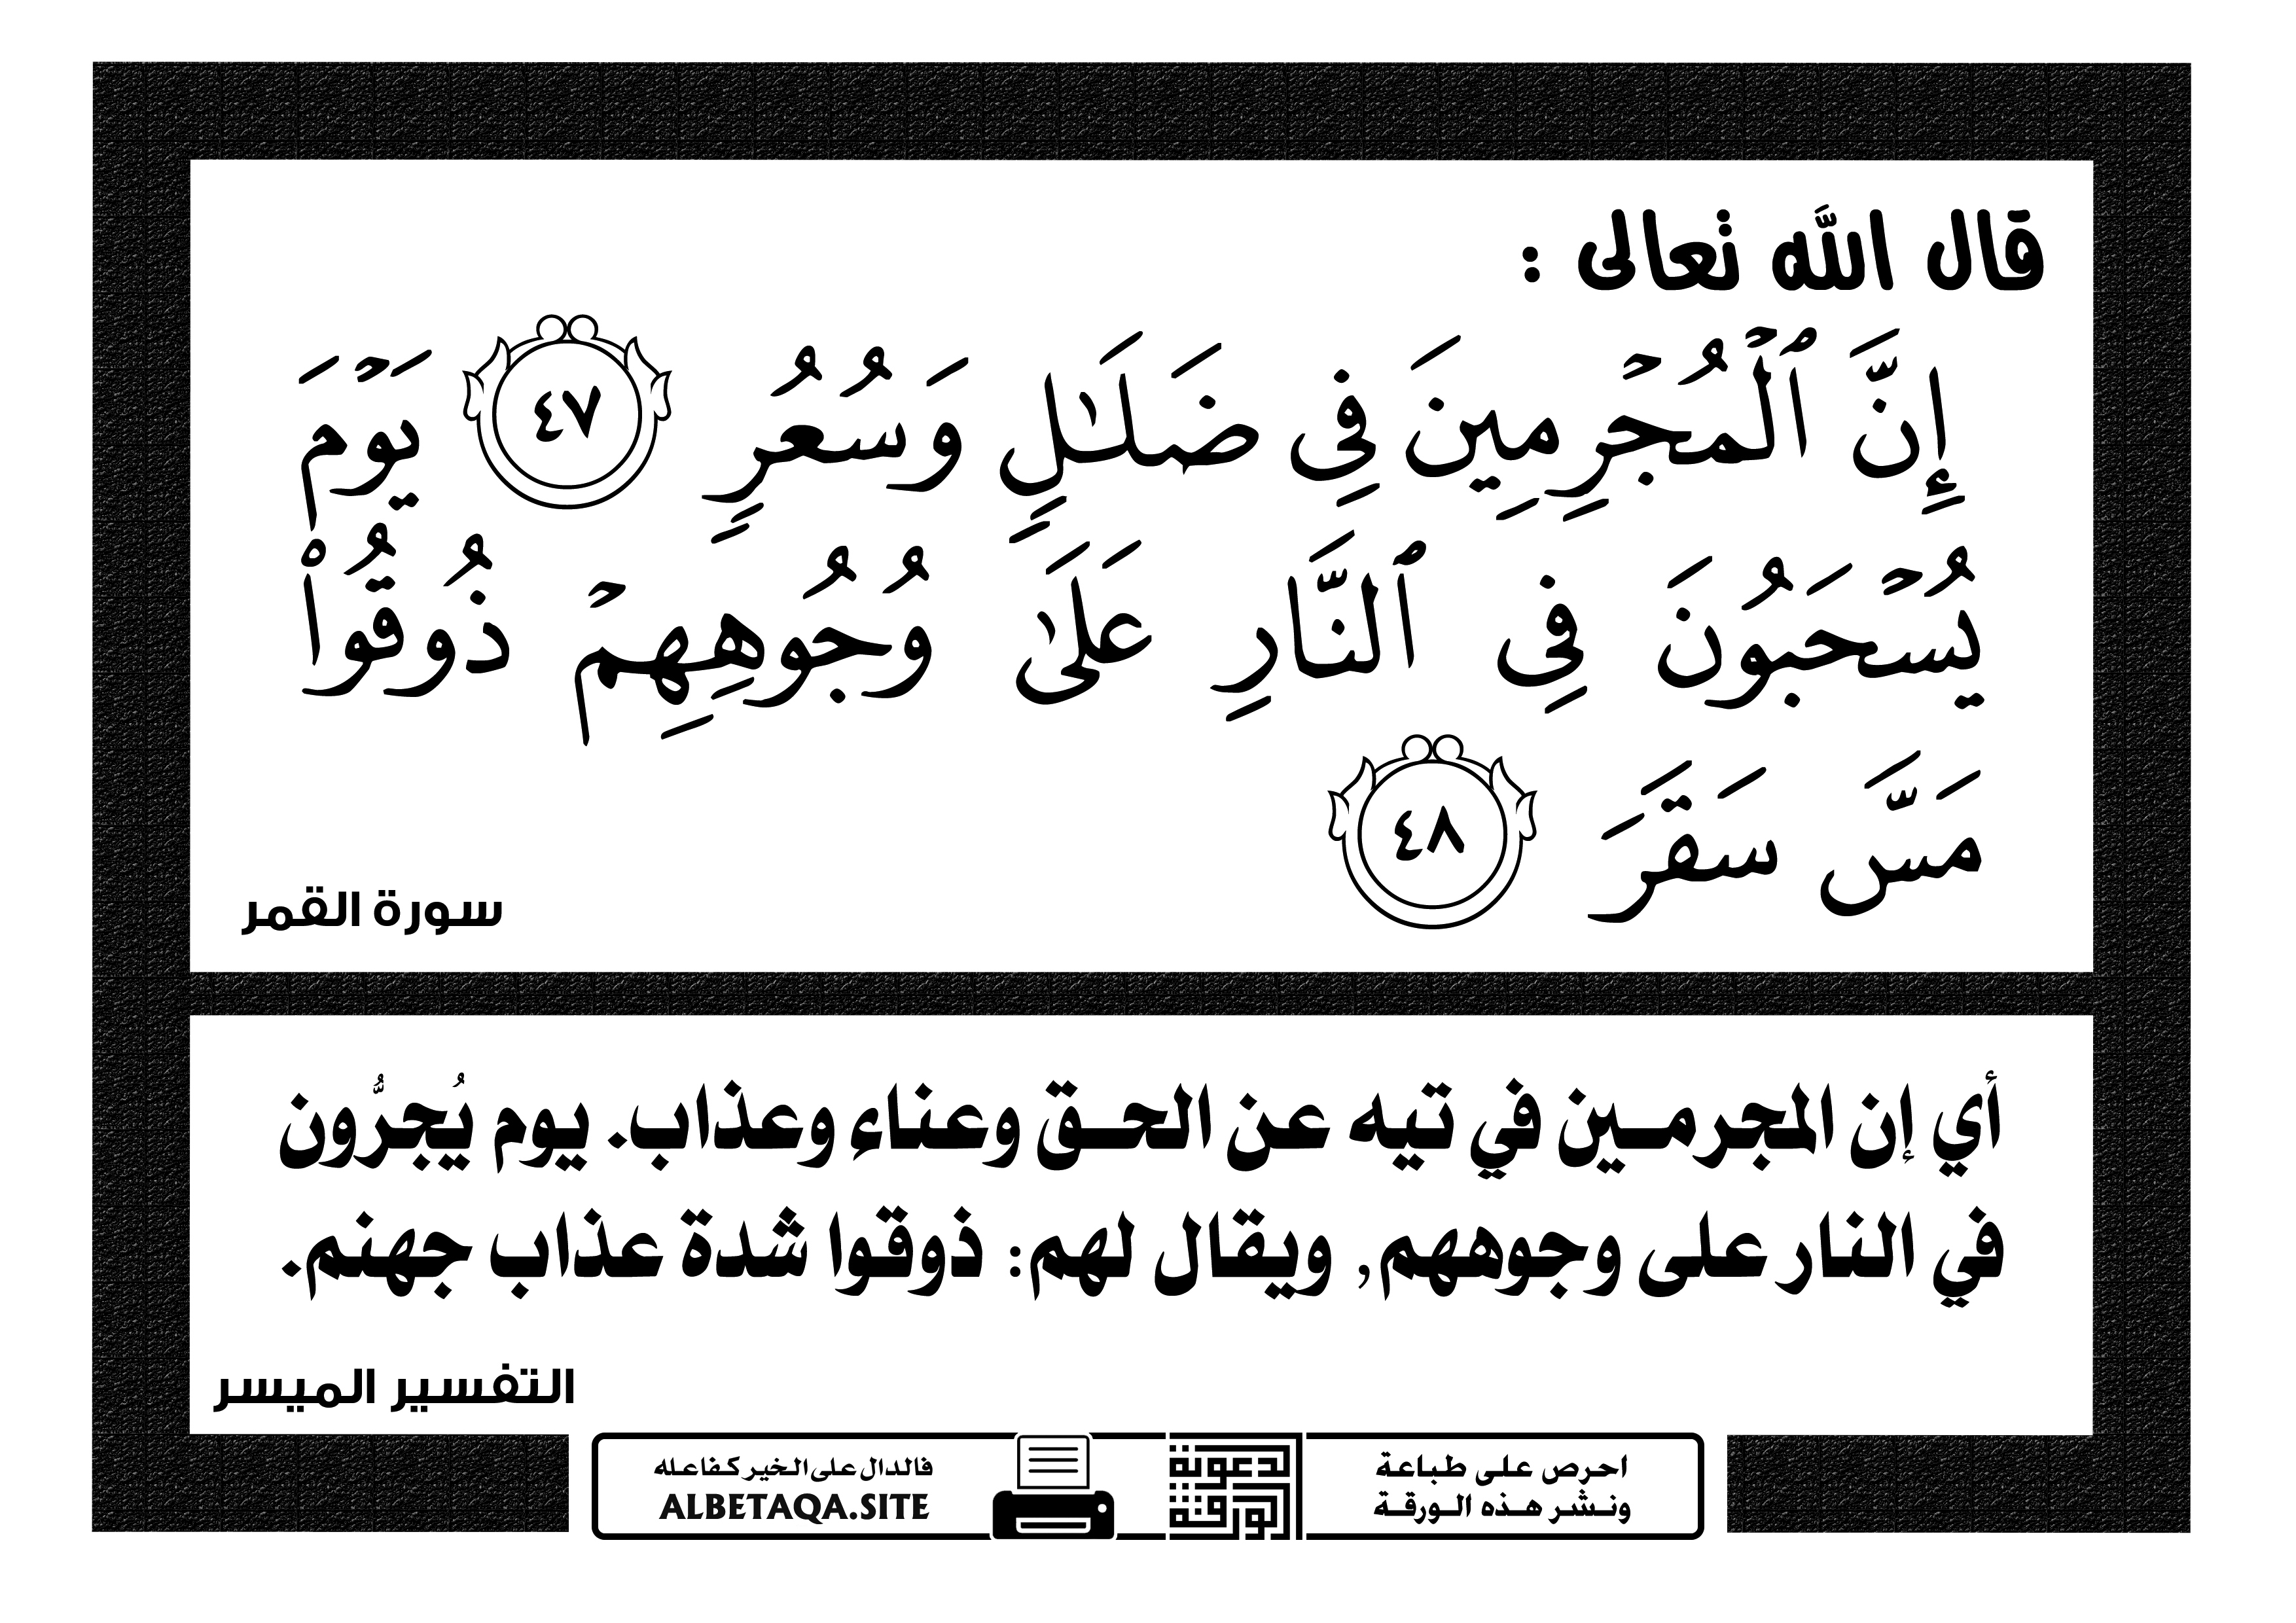 قال الله تعالى :
إِنَّ ٱلۡمُجۡرِمِينَ فِي ضَلَٰلٖ وَسُعُرٖ ٤٧ يَوۡمَ
يُسۡحَبُونَ فِي ٱلنَّارِ عَلَىٰ وُجُوهِهِمۡ ذُوقُواْ
مَسَّ سَقَرَ ٤٨
سورة القمر
أي إن المجرمين في تيه عن الحق وعناء وعذاب. يوم يُجرُّون
في النار على وجوههم, ويقال لهم: ذوقوا شدة عذاب جهنم.
التفسير الميسر
احرص على طباعة
ونشر هذه الورقة
الدعوية
الورقة
فالدال على الخير كفاعله
ALBETAQA.SITE